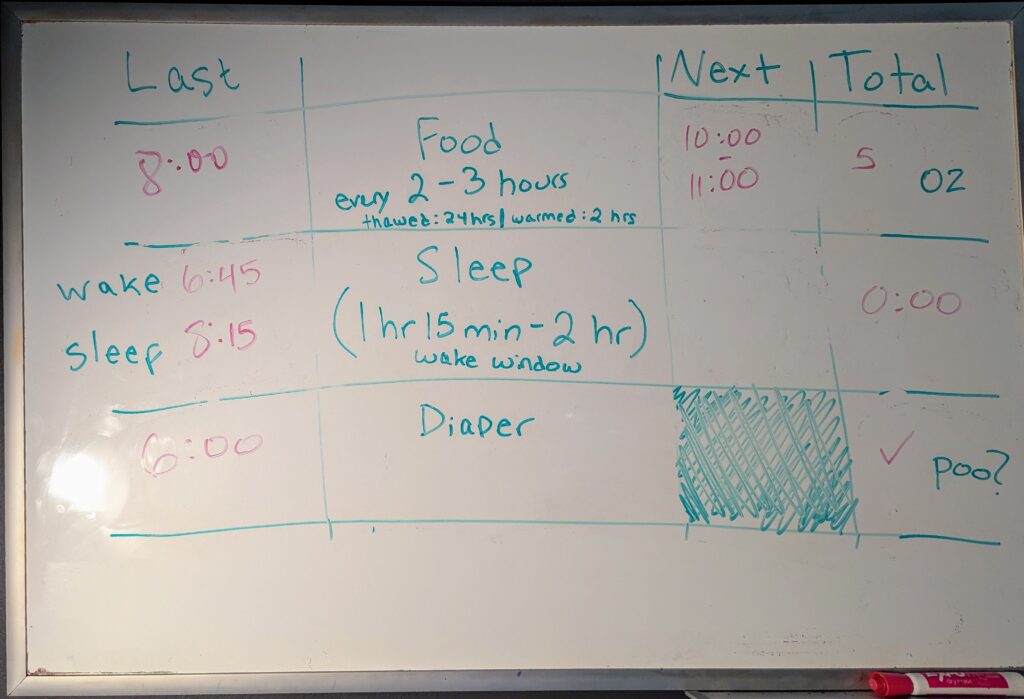 Last Next Total
8:00 Food 10:00 - 11:00 5 oz
every 2-3 hours
thawed: 24hrs | warmed: 2 hrs
wake 6:45 Sleep 0:00
sleep 8:15 (1 hr 15 min - 2 hr)
wake window
6:00 Diaper ✓ poo?